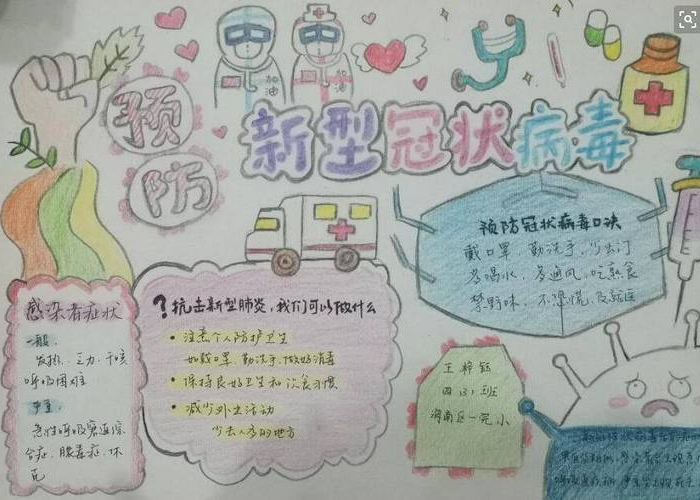 预
防
新型冠状病毒
加油
加油
预防冠状病毒口决
戴口罩 勤洗手, 少出门
多喝水, 多通风, 吃熟食
禁野味, 不恐慌, 及就医
感染者症状
一般:
发热、乏力、干咳
呼吸困难
严重:
急性呼吸窘迫综
合症、脓毒症、休
克
?抗击新型肺炎,我们可以做什么
注意个人防护卫生
如戴口罩、勤洗手、做好消毒
保持良好卫生和饮食习惯
减少外生活动
少去人多的地方
王梓钰
四(3)班
海南区一完小